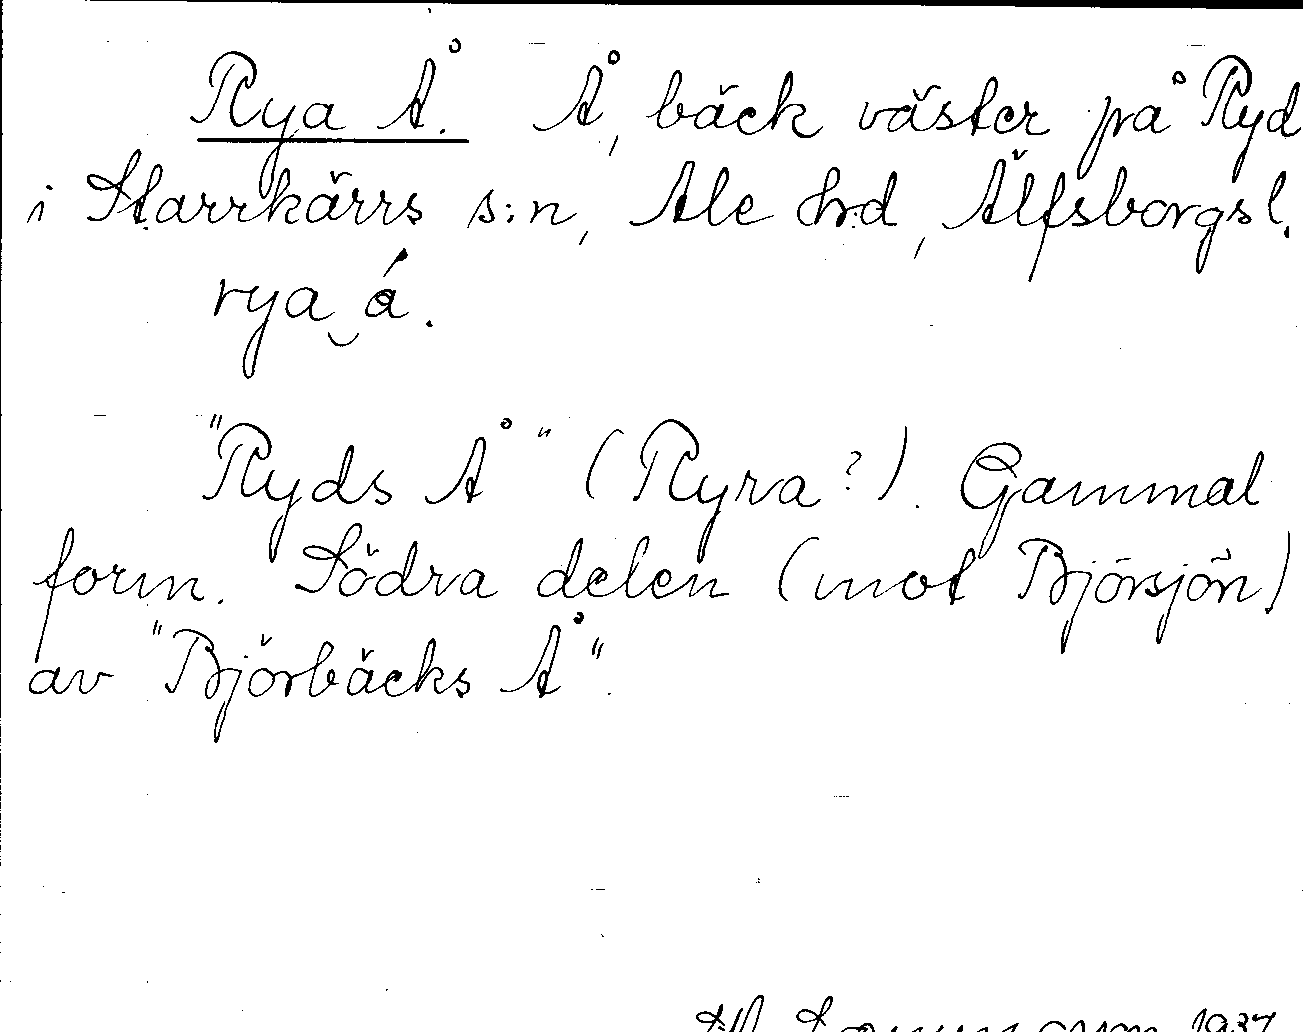 Rya Å. Å, bäck väster på Ryd
i Starrkärrs s:n, Ale hrd, Älfsborgsl.
rya‿á.
"Ryds Å" (Ryra?). Gammal
form. Södra delen (mot Björsjön)
av "Björbäcks Å".
1937